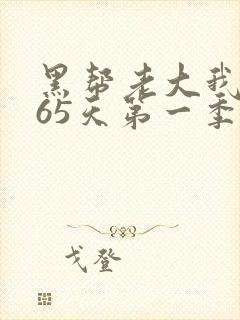 黑帮老大我
65天第一季
戈登